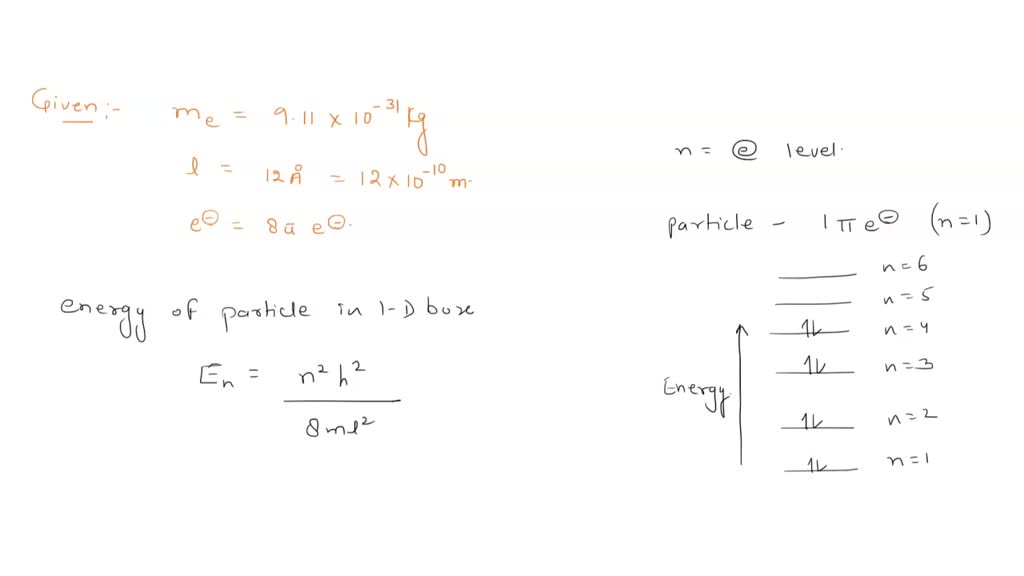 Given:- me = 9.11 x 10^-31 kg
l = 12Å = 12x10^-10 m.
e⊖ = 8π e⊖.
energy of particle in 1-D boxe
En = n²h²
8ml²
n = ⓔ level.
particle - 1 π e⊖ (n=1)
n=6
n=5
n=4
n=3
Energy
n=2
n=1